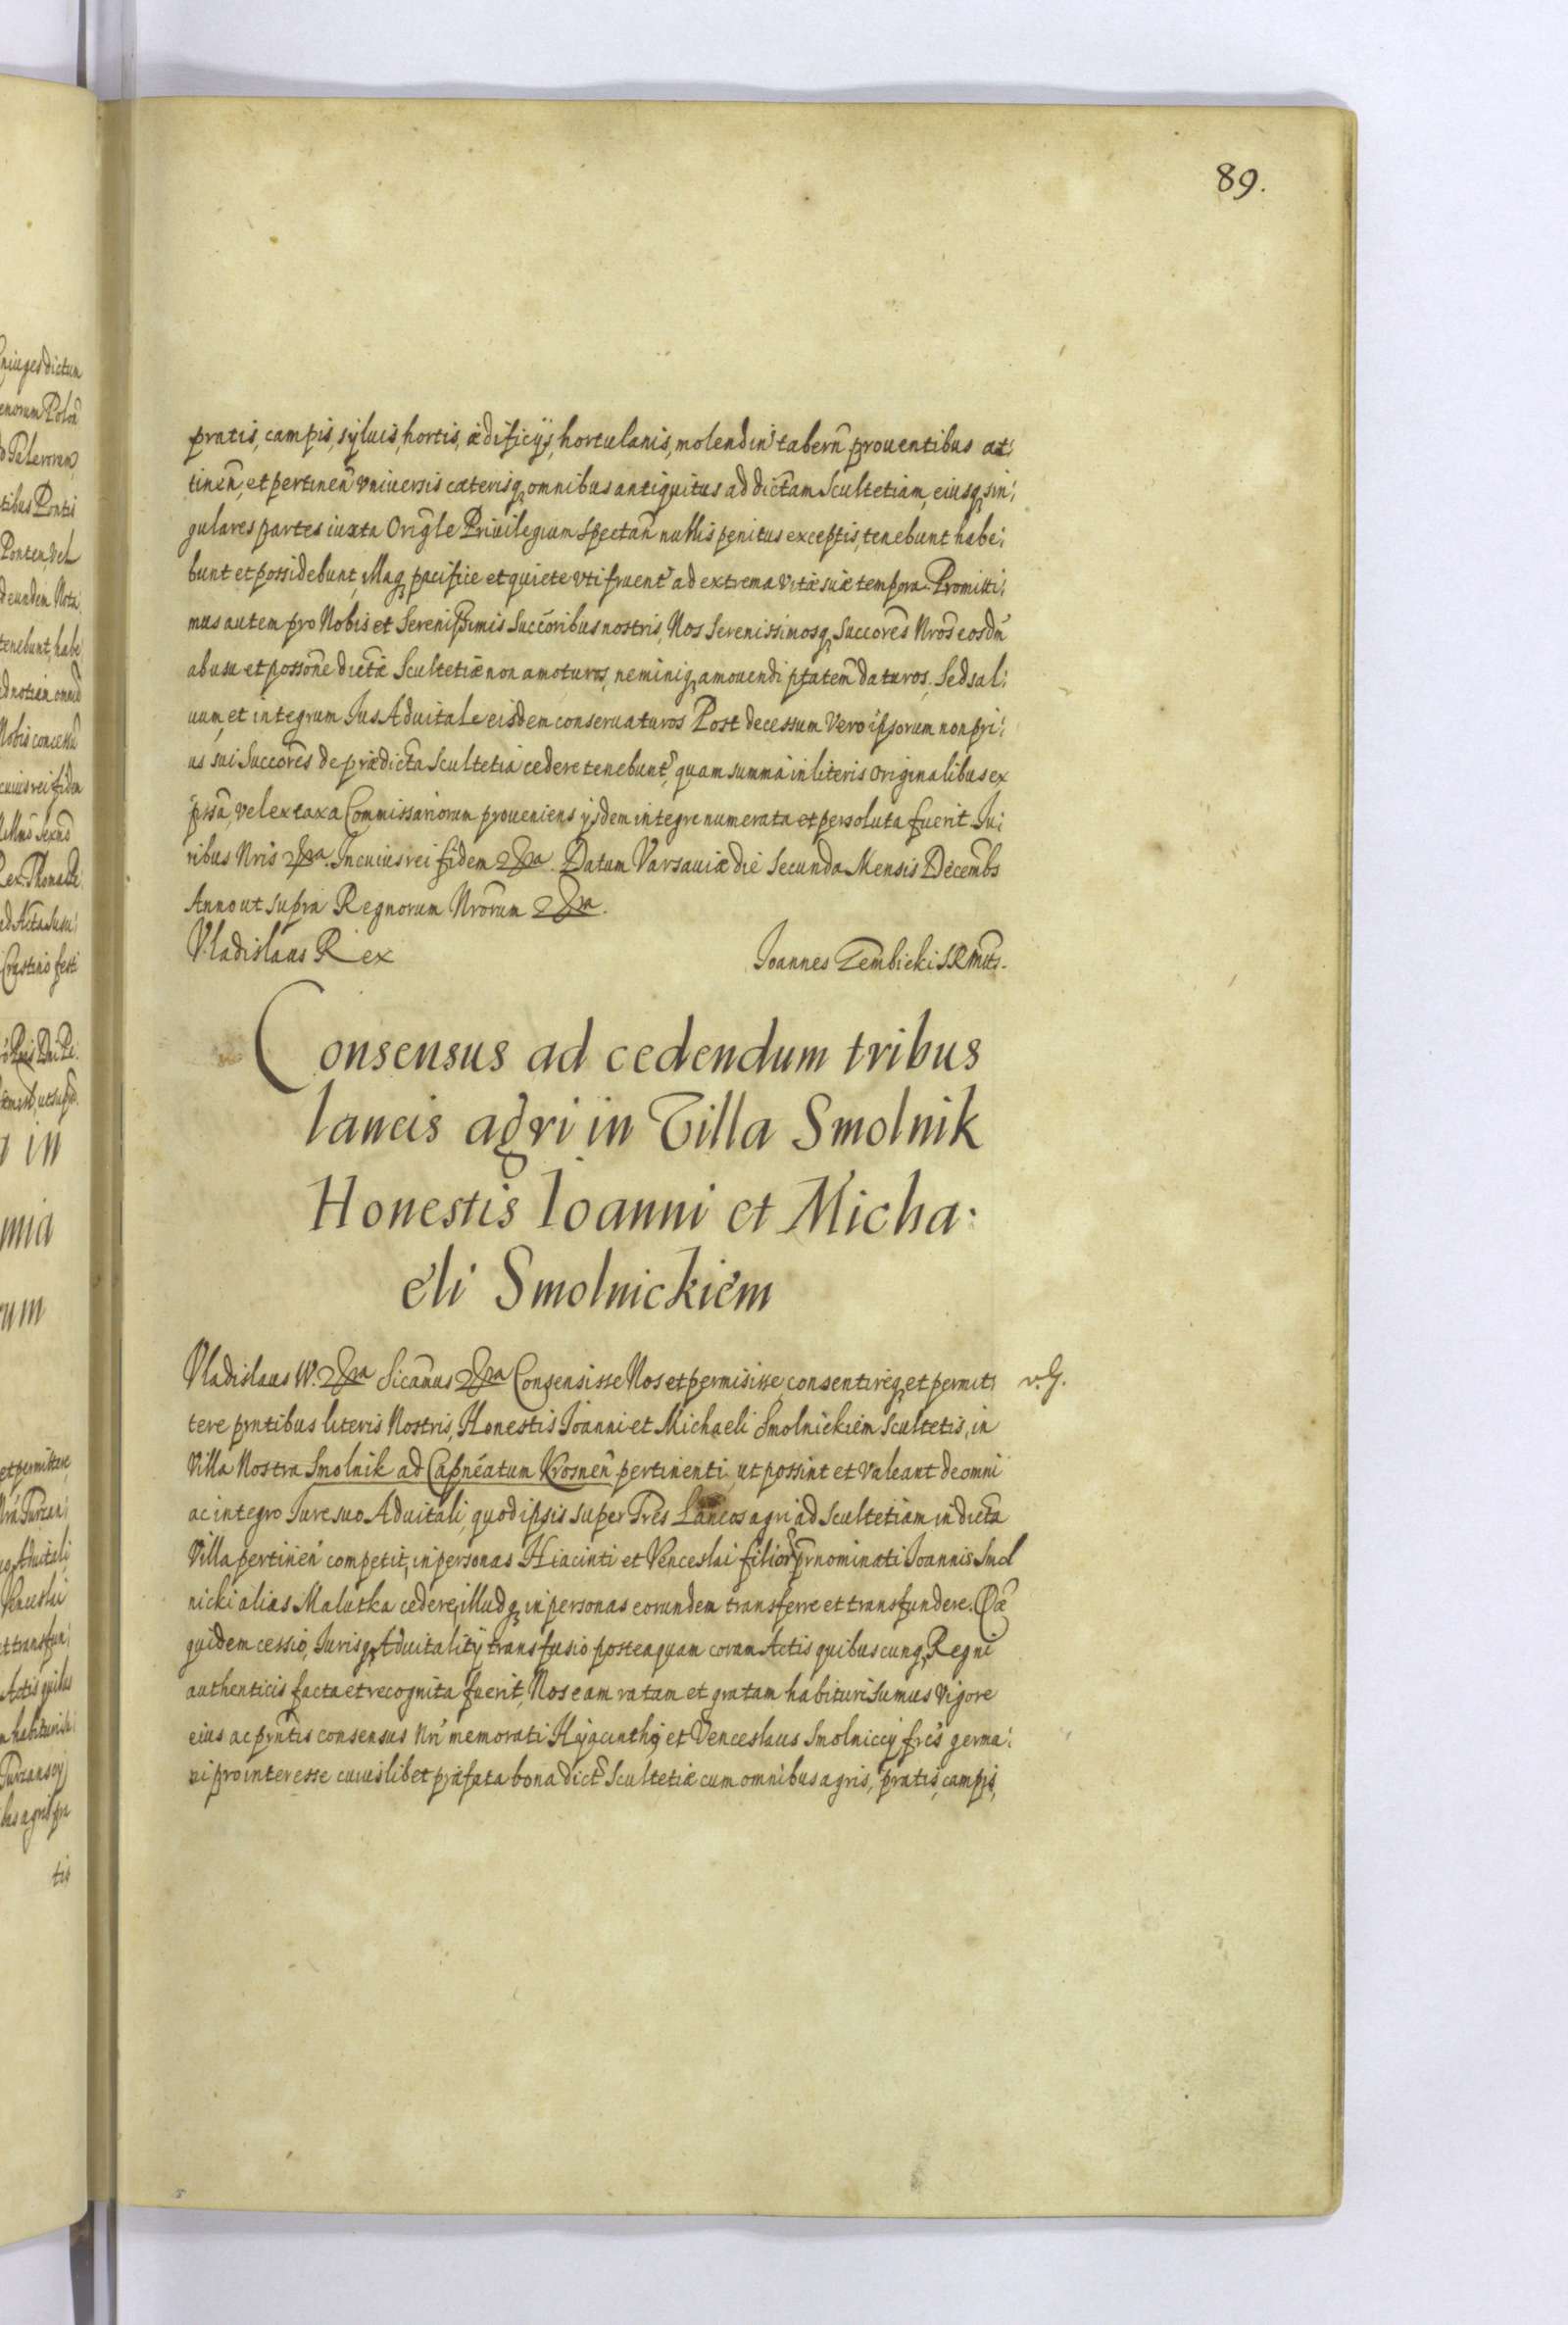 89.
pratis, campis, syluis, hortis, ædificijs, hortulanis, molendin̄ tabern̄ prouentibus at:
tinen̄, et pertinen̄ vniuersis cæterisq; omnibus antiquitus ad dictam Scultetiam, eiusq; sin:
gulares partes iuxta Orig̃le Priuilegium Spectan̄ nullis penitus exceptis, tenebunt habe:
bunt et possidebunt, Illaq; pacifice et quiete vti fruent' ad extrema vitæ suæ tempora. Promitti:
mus autem pro Nobis et Serenissimis Succõribus nostris, Nos Serenissimosq; Succores Nros eosdm̃
ab usu et possone dictæ Scultetiæ non amoturos, neminiq; amouendi ptatem daturos. Sed sal:
uum, et integrum Jus Aduitale eisdem conseruaturos Post decessum Vero ipsorum non pri:
us sui Succores de prædicta Scultetia cedere tenebunt', quam summa in literis originalibus ex
pssa, vel ex taxa Commissariorum proueniens ijsdem integre numerata et persoluta fuerit. Ju:
ribus Nris &ra. In cuius rei fidem &ra. Datum Varsauiæ die Secunda Mensis Decembs
Anno ut supra Regnorum Nrorum &ra.
Vladislaus Rex
Joannes Gembicki S R Mtis.
Consensus ad cedendum tribus
laneis agri in Villa Smolnik
Honestis Ioanni et Micha:
eli Smolnickiem
Vladislaus IV. &ra Sicamus &ra Consensisse Nos et permisisse, consentireq; et permit:
tere pntibus literis Nostris, Honestis Joanni et Michaeli Smolnickiem Scultetis, in
Villa Nostra Smolnik ad Capneatum Krosnen̄ pertinenti, ut possint et valeant de omni
ac integro Jure suo Aduitali, quod ipsis super Tres Laneos agri ad Scultetiam in dicta
Villa pertinen̄ competit, in personas Hiacinti et Venceslai filior prnominati Joannis Smol
nicki alias Malutka cedere, illudq; in personas eorundem transferre et transfundere. Quæ
quidem cessio, Jurisq; Aduitalitij transfusio posteaquam coram Actis quibuscunq; Regni
authenticis facta et recognita fuerit, Nos eam ratam et gratam habituri sumus Vigore
eius ac pntis consensus Nri memorati Hyacinthq et Venceslaus Smolniccy frẽs germa:
ni pro interesse cuiuslibet præfata bona dict' Scultetiæ cum omnibus agris, pratis, campis,